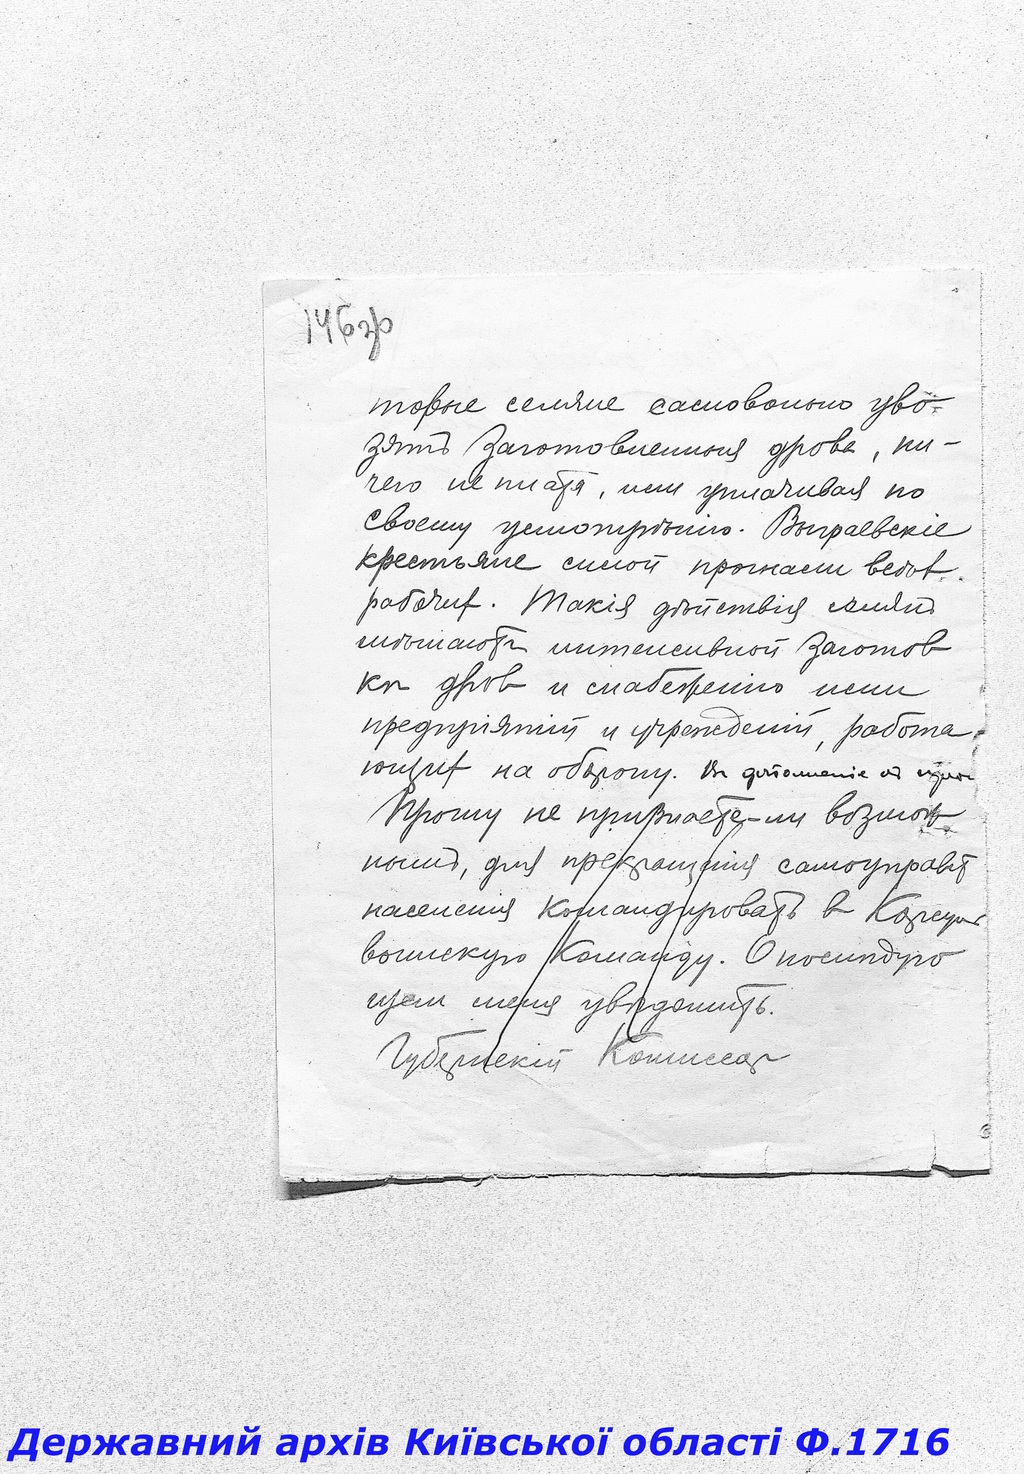 146зр
торые селяне самовольно уво-
зятъ заготовленныя дрова, ни-
чего не платя, или уплачивая по
своему усмотрѣнію. Выграевскіе
крестьяне силой прогнали всѣх
рабочих. Такія дѣйствія селянъ
мѣшаютъ интенсивной заготов
кѣ дров и снабженію ими
предпріятій и учрежденій, работа
ющих на оборону. Въ дополненіе къ
Прошу не признаете-ли возмож
нымъ, для прекращенія самоуправст
населенія командировать в Корсунь
воинскую команду. О послѣдую
щем меня увѣдомить.
Губернскій Комиссар
Державний архів Київської області Ф.1716